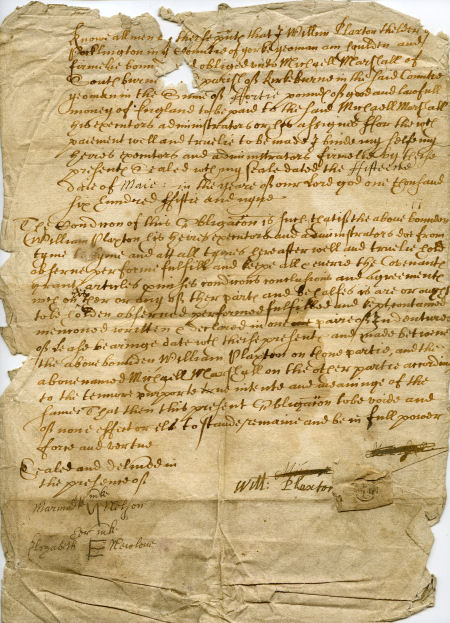 Knowe all men by these pnts that I Willm Plaxton the elder
Pocklington in ye Countie of yorke yeoman am houlden and
firmelie bound obliged unto Michaell Marshall of
Southburne parish of Kirkburne in the said Countie
yeoman in the Some of ffortie pounds of good and lawfull
money of England to be paid to the said Michaell Marshall
his executors administrators or his assignes ffor the wch
paiement well and truelie to be made I binde my selfe my
heyres executors and administrators firmelie by these
presents Sealed with my seale dated the ffifteene
date of Maie: in the yeare of our Lord god one thousand
six hundred ffiftie and nyne
The Condicon of this Obligation is such that if the above bounden
William Plaxton his heyres executors and administrators doe from
tyme to tyme and att all tymes hereafter well and truelie
observe performe fulfill and keepe all & everie the Covenants
grants articles condicons conclusions and agreements
wch on his or any of their parts and behalfes is are or ought
to be observed performed fulfilled and kept contained
menconed written & declared in one paire of Indentures
of Lease bearinge date wth these presents and made betweene
the above bounden William Plaxton on thone partie, and the
abovenamed Michaell Marshall on the other partie accordin
to the tenure purporte intente and meaninge of the
same That then this present Obligation to be voide and
of none effect or els to stande remaine and be in full power
force and vertue
Sealed and deliuered in
the presence of
Willm: Plaxton
Marmad: Nelson
Elizabeth Newlove